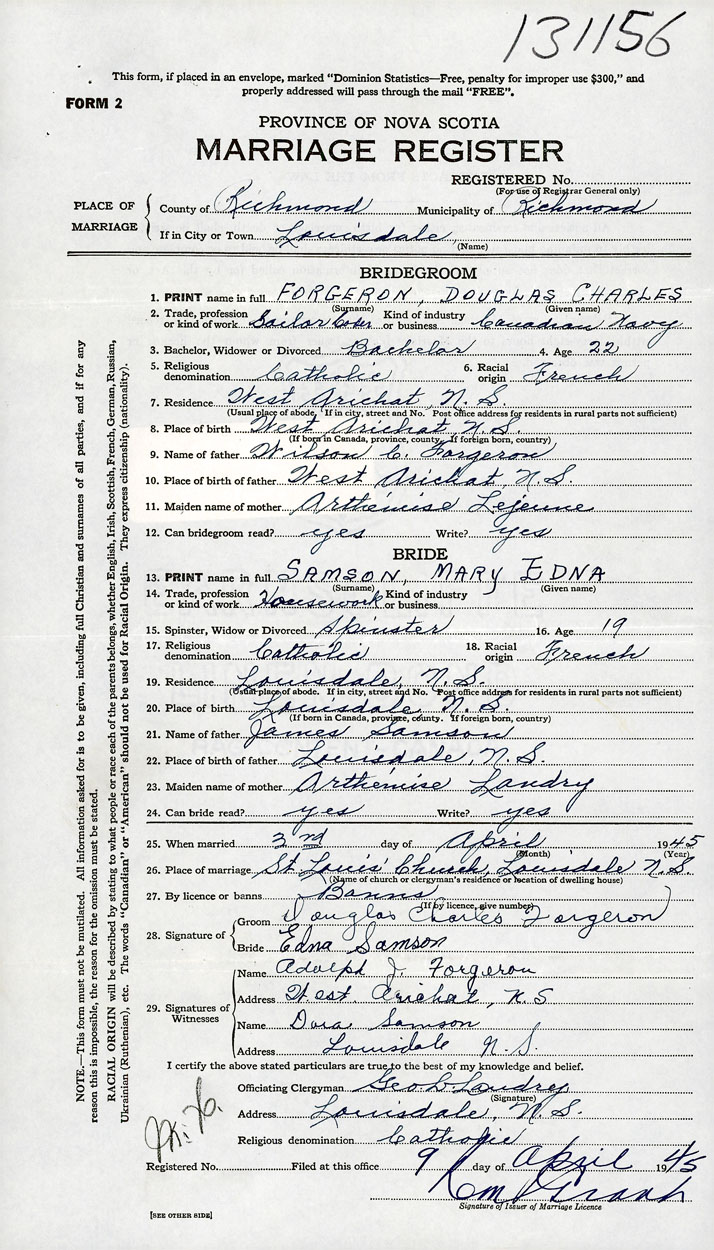 131156
This form, if placed in an envelope, marked "Dominion Statistics—Free, penalty for improper use $300," and
properly addressed will pass through the mail "FREE".
FORM 2
PROVINCE OF NOVA SCOTIA
MARRIAGE REGISTER
REGISTERED No.
(For use of Registrar General only)
PLACE OF MARRIAGE
County of Richmond Municipality of Richmond
If in City or Town Louisdale
(Name)
BRIDEGROOM
1. PRINT name in full FORGERON, DOUGLAS CHARLES
(Surname) (Given name)
2. Trade, profession or kind of work Sailor Kind of industry or business Canadian Navy
3. Bachelor, Widower or Divorced Bachelor 4. Age 22
5. Religious denomination Catholic 6. Racial origin French
7. Residence West Arichat, N.S.
(Usual place of abode. If in city, street and No. Post office address for residents in rural parts not sufficient)
8. Place of birth West Arichat, N.S.
(If born in Canada, province, county. If foreign born, country)
9. Name of father Wilson C. Forgeron
10. Place of birth of father West Arichat, N.S.
11. Maiden name of mother Arthémise Lejeune
12. Can bridegroom read? yes Write? yes
BRIDE
13. PRINT name in full SAMSON, MARY EDNA
(Surname) (Given name)
14. Trade, profession or kind of work Housework Kind of industry or business
15. Spinster, Widow or Divorced Spinster 16. Age 19
17. Religious denomination Catholic 18. Racial origin French
19. Residence Louisdale, N.S.
(Usual place of abode. If in city, street and No. Post office address for residents in rural parts not sufficient)
20. Place of birth Louisdale, N.S.
(If born in Canada, province, county. If foreign born, country)
21. Name of father James Samson
22. Place of birth of father Louisdale, N.S.
23. Maiden name of mother Arthémise Landry
24. Can bride read? yes Write? yes
25. When married 3rd day of April 1945
(Month) (Year)
26. Place of marriage St Louis' Church, Louisdale N.S.
(Name of church or clergyman's residence or location of dwelling house)
27. By licence or banns Banns
(If by licence, give number)
28. Signature of
Groom Douglas Charles Forgeron
Bride Edna Samson
29. Signatures of Witnesses
Name Adolph J. Forgeron
Address West Arichat, N.S
Name Dora Samson
Address Louisdale N.S.
I certify the above stated particulars are true to the best of my knowledge and belief.
Officiating Clergyman Geo. D. Landry
(Signature)
Address Louisdale, N.S.
Religious denomination Catholic
Registered No. Filed at this office 9 day of April 1945
Signature of Issuer of Marriage Licence
[SEE OTHER SIDE]
NOTE.—This form must not be mutilated. All information asked for is to be given, including full Christian and surnames of all parties, and if for any
reason this is impossible, the reason for the omission must be stated.
RACIAL ORIGIN will be described by stating to what people or race each of the parents belongs, whether English, Irish, Scottish, French, German, Russian,
Ukrainian (Ruthenian), etc. The words "Canadian" or "American" should not be used for Racial Origin. They express citizenship (nationality).